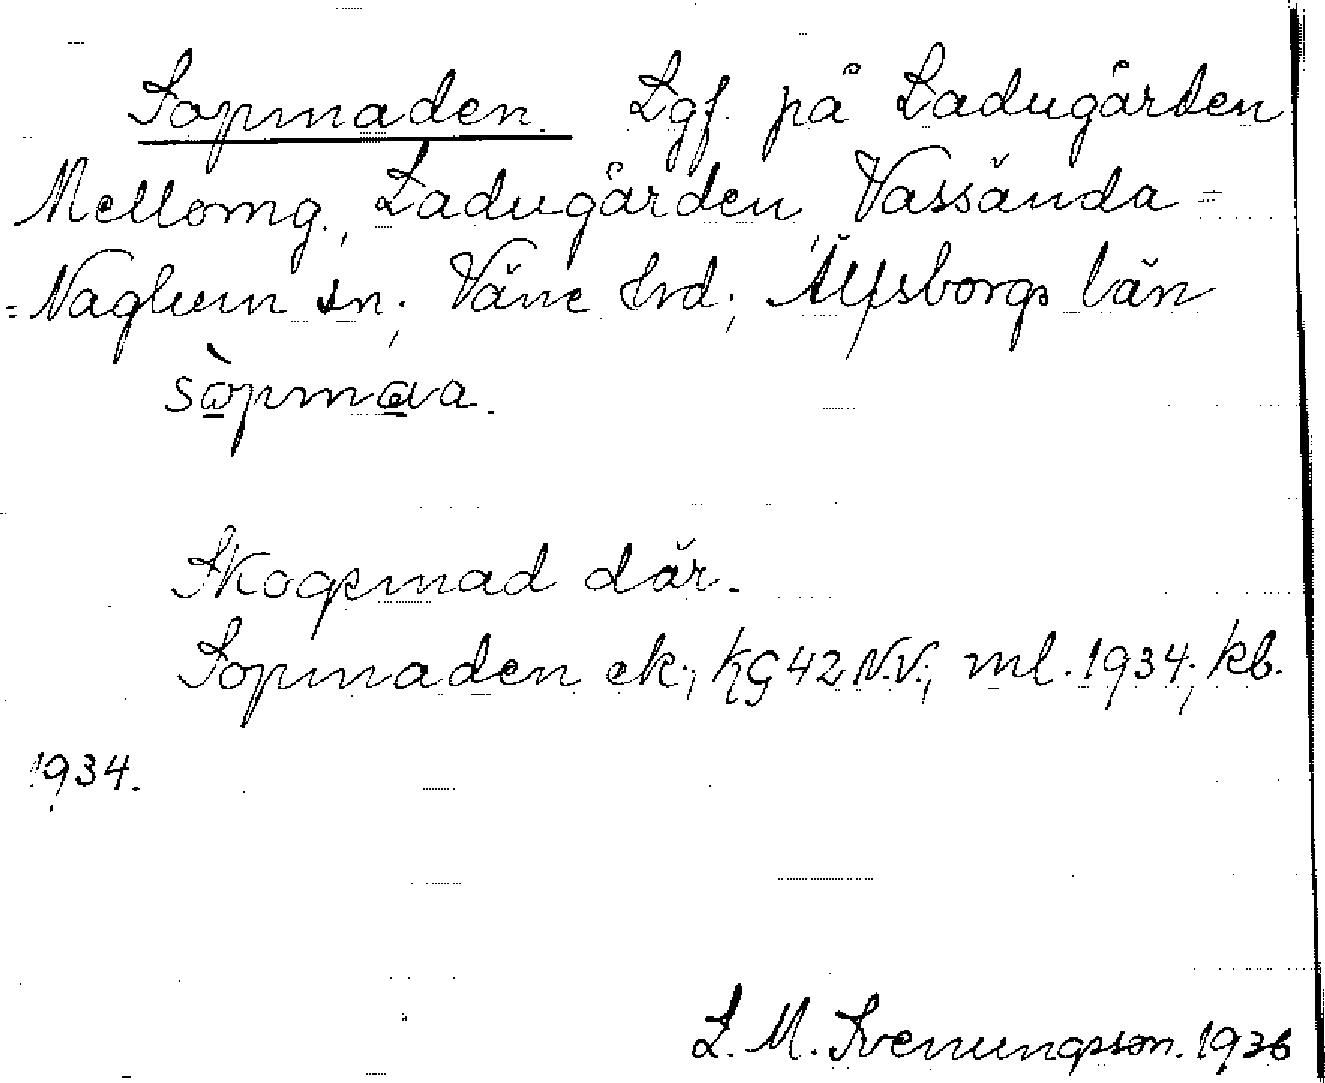 Sopmaden. Lgf. på Ladugården
Mellomg., Ladugården Vassända-
-Naglum sn; Väne hrd; Älfsborgs län
sòpmava.
Skogsmad där.
Sopmaden ek.; KG 42 N.V.; ml. 1934; kb.
1934.
L. M. Svenungsson. 1936